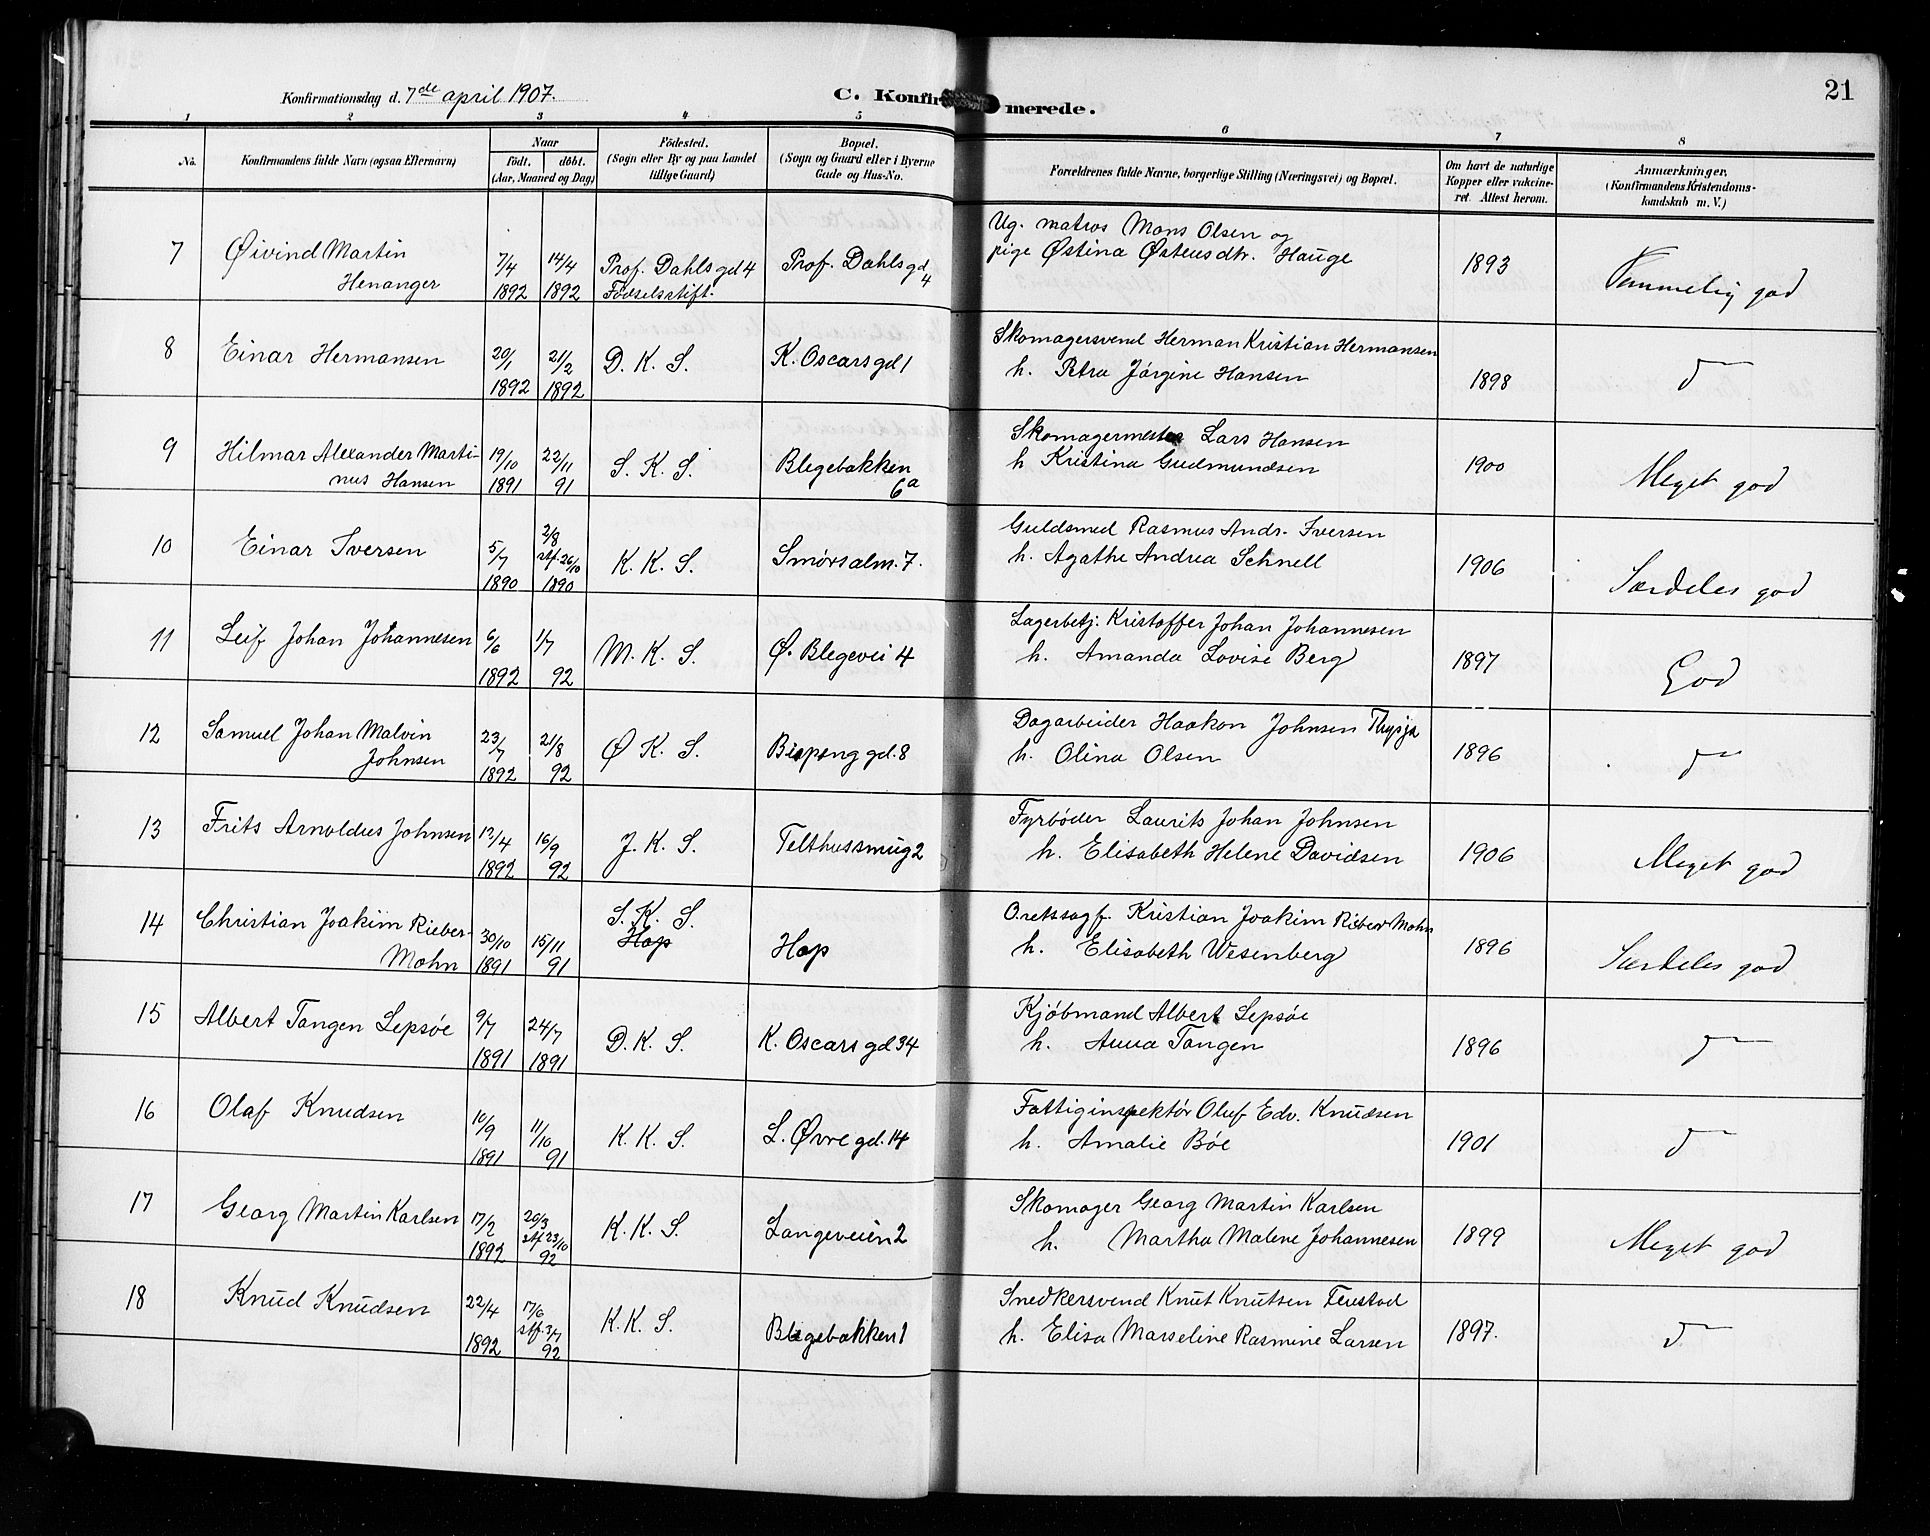 Konfirmationsdag d. 7de april 1907.
C. Konfirmerede.
21
1 2 3 4 5 6 7 8
No.
Konfirmandens fulde Navn (ogsaa Efternavn)
Naar
født. døbt.
(Aar, Maaned og Dag)
Födested.
(Sogn eller By og paa Landet
tillige Gaard)
Bopæl.
(Sogn og Gaard eller i Byerne
Gade og Hus-No.
Forældrenes fulde Navne, borgerlige Stilling (Næringsvei) og Bopæl.
Om havt de naturlige
Kopper eller vakcine-
ret. Attest herom.
Anmærkninger.
(Konfirmandens Kristendoms-
kundskab m. V.)
7
Øivind Martin
Henanger
7/4
1892
14/4
1892
Prof. Dahls gd 4
Fødselsstift.
Prof. Dahls gd
4
Ug. matros Mons Olsen og
pige Østina Østensdtr. Hauge
1893
Temmelig god
8
Einar Hermansen
20/1
1892
21/2
1892
D. K. S.
K. Oscars gd 1
Skomagersvend Herman Kristian Hermansen
h. Petra Jørgine Hansen
1898
d
9
Hilmar Alexander Marti-
nus Hansen
19/10
1891
22/11
91
S. K. S.
Blegebakken
6a
Skomagermester Lars Hansen
h Kristina Gudmundsen
1900
Meget god
10
Einar Iversen
5/7
1890
2/8
stf. 26/10
1890
K. K. S.
Smørsalm. 7.
Guldsmed Rasmus Andr. Iversen
h. Agathe Andrea Schnell
1906
Særdeles god
11
Leif Johan Johannesen
6/6
1892
1/7
92
M. K. S.
Ø. Blegevei 4
Lagerbetj. Kristoffer Johan Johannesen
h. Amanda Lovise Berg
1897
God
12
Samuel Johan Malvin
Johnsen
23/7
1892
21/8
92
Ø K. S.
Bispeng gd. 8
Dagarbeider Haakon Johnsen
h. Olina Olsen
1896
d
13
Frits Arnoldus Johnsen
12/4
1892
16/9
92
J. K. S.
Telthussmug 2
Fyrbøder Laurits Johan Johnsen
h. Elisabeth Helene Davidsen
1906
Meget god
14
Christian Joakim Rieber-
Mohn
30/10
1891
15/11
91
S. K. S.
Hop
Hop
O.retssagf. Kristian Joakim Rieber Mohn
h. Elisabeth Wesenberg
1896
Særdeles god
15
Albert Tangen Lepsøe
9/7
1891
24/7
1891
D. K. S.
K. Oscars gd 34
Kjøbmand Albert Lepsøe
h. Anna Tangen
1896
d
16
Olaf Knudsen
10/9
1891
11/10
91
K. K. S.
L. Øvre gd. 14
Fattiginspektør Oluf Edv. Knudsen
h. Amalie Bøe
1901
d
17
Georg Martin Karlsen
17/2
1892
20/3
stf 23/10
92
K. K. S.
Langeveien 2
Skomager Georg Martin Karlsen
h. Martha Malene Johannesen
1899
Meget god
18
Knud Knudsen
22/4
1892
17/6
stf. 3/7
92
K. K. S.
Blegebakken 1
Snedkersvend Knut Knutsen
h. Elisa Marseline Rasmine Larsen
1897.
d